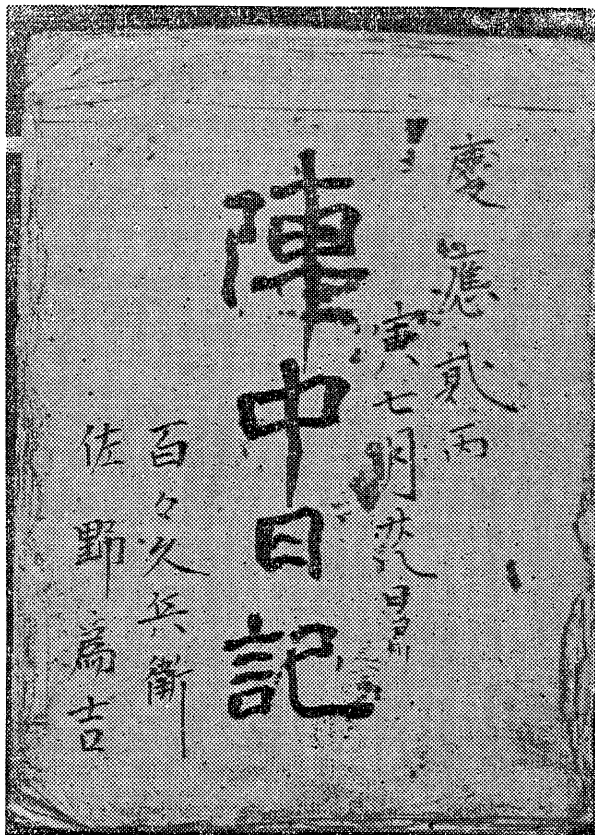 慶應貳丙
寅七月廿八日
陣中日記
百々久兵衛
佐野爲吉